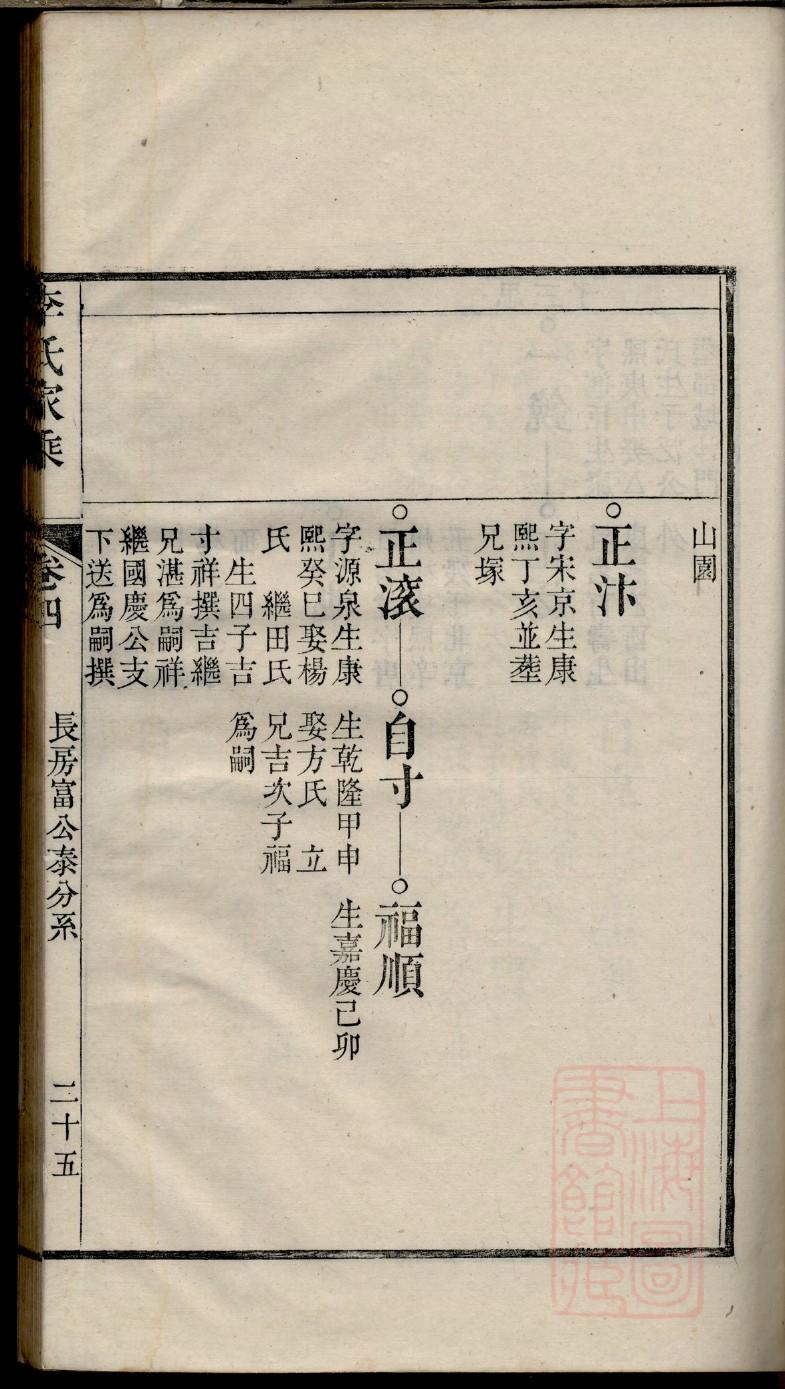 山園
○正汴
字宋京生康
熙丁亥並塟
兄塚
○正滚
字源泉生康
熙癸巳娶楊
氏　繼田氏
生四子吉
寸祥撰吉繼
兄湛爲嗣祥
繼國慶公支
下送爲嗣撰
○自寸
生乾隆甲申
娶方氏　立
兄吉次子福
爲嗣
○福順
生嘉慶己卯
李氏家乘
卷四
長房富公泰分系
二十五
上海圖
書館藏